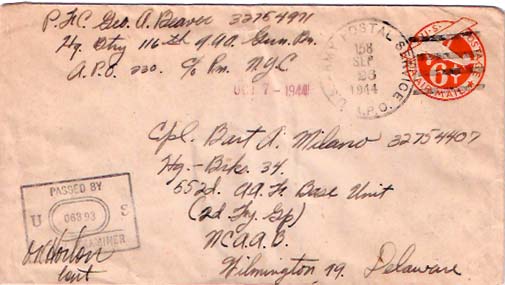 P.F.C. Geo. A. Beaver 32754971
Hq. Btry 116th A.A.A. Gun. Bn.
A.P.O. 230. c/o Pm. NYC
U.S. ARMY POSTAL SERVICE
A.P.O.
158
SEP
1944
OCT 7 - 1944
U.S. POSTAGE
6¢
VIA AIR MAIL
Cpl. Bart A. Milano 32754407
Hq. - Brks. 34
552d. AA Fr. Base Unit
(2d. Fry Gp)
NCAAB.
Wilmington 99. Delaware
PASSED BY
U 06393 S
EXAMINER
Horton
Capt